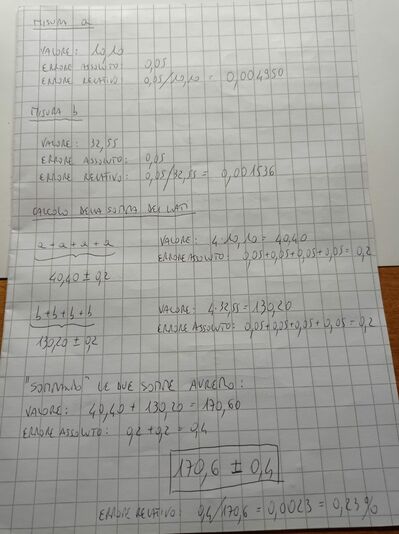 MISURA a
VALORE: 10,10
ERRORE ASSOLUTO: 0,05
ERRORE RELATIVO 0,05/10,10 = 0,004950
MISURA b
VALORE: 32,55
ERRORE ASSOLUTO: 0,05
ERRORE RELATIVO: 0,05/32,55 = 0,001536
CALCOLO DELLA SOMMA DEI LATI
a + a + a + a VALORE: 4·10,10 = 40,40
ERRORE ASSOLUTO: 0,05+0,05+0,05+0,05 = 0,2
40,40 ± 0,2
b + b + b + b VALORE: 4·32,55 = 130,20
ERRORE ASSOLUTO: 0,05+0,05+0,05+0,05 = 0,2
130,20 ± 0,2
"SOMMANDO" LE DUE SOMME AVREMO:
VALORE: 40,40 + 130,20 = 170,60
ERRORE ASSOLUTO: 0,2 + 0,2 = 0,4
170,6 ± 0,4
ERRORE RELATIVO: 0,4/170,6 = 0,0023 = 0,23%